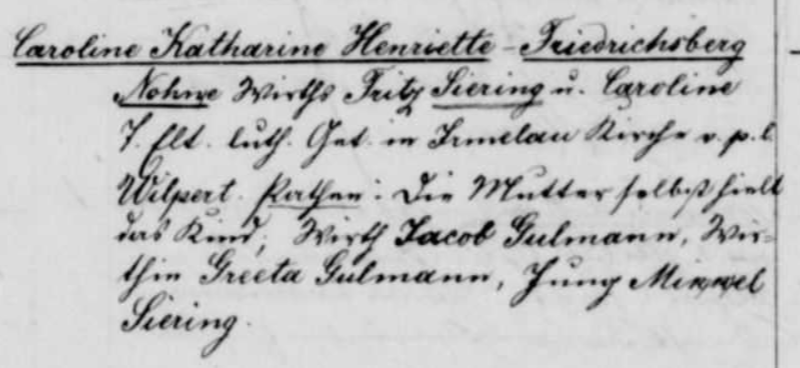 Caroline Katharine Henriette - Friedrichsberg
Wirths Fritz Siering u. Caroline
Elt. luth. Get. in Irmelau Kirche v. p. l.
Wilpert. Pathen: Die Mutter selbst hielt
das Kind; Wirth Jacob Gulmann, Wir=
thin Greeta Gulmann, Jung Mikkel
Siering.